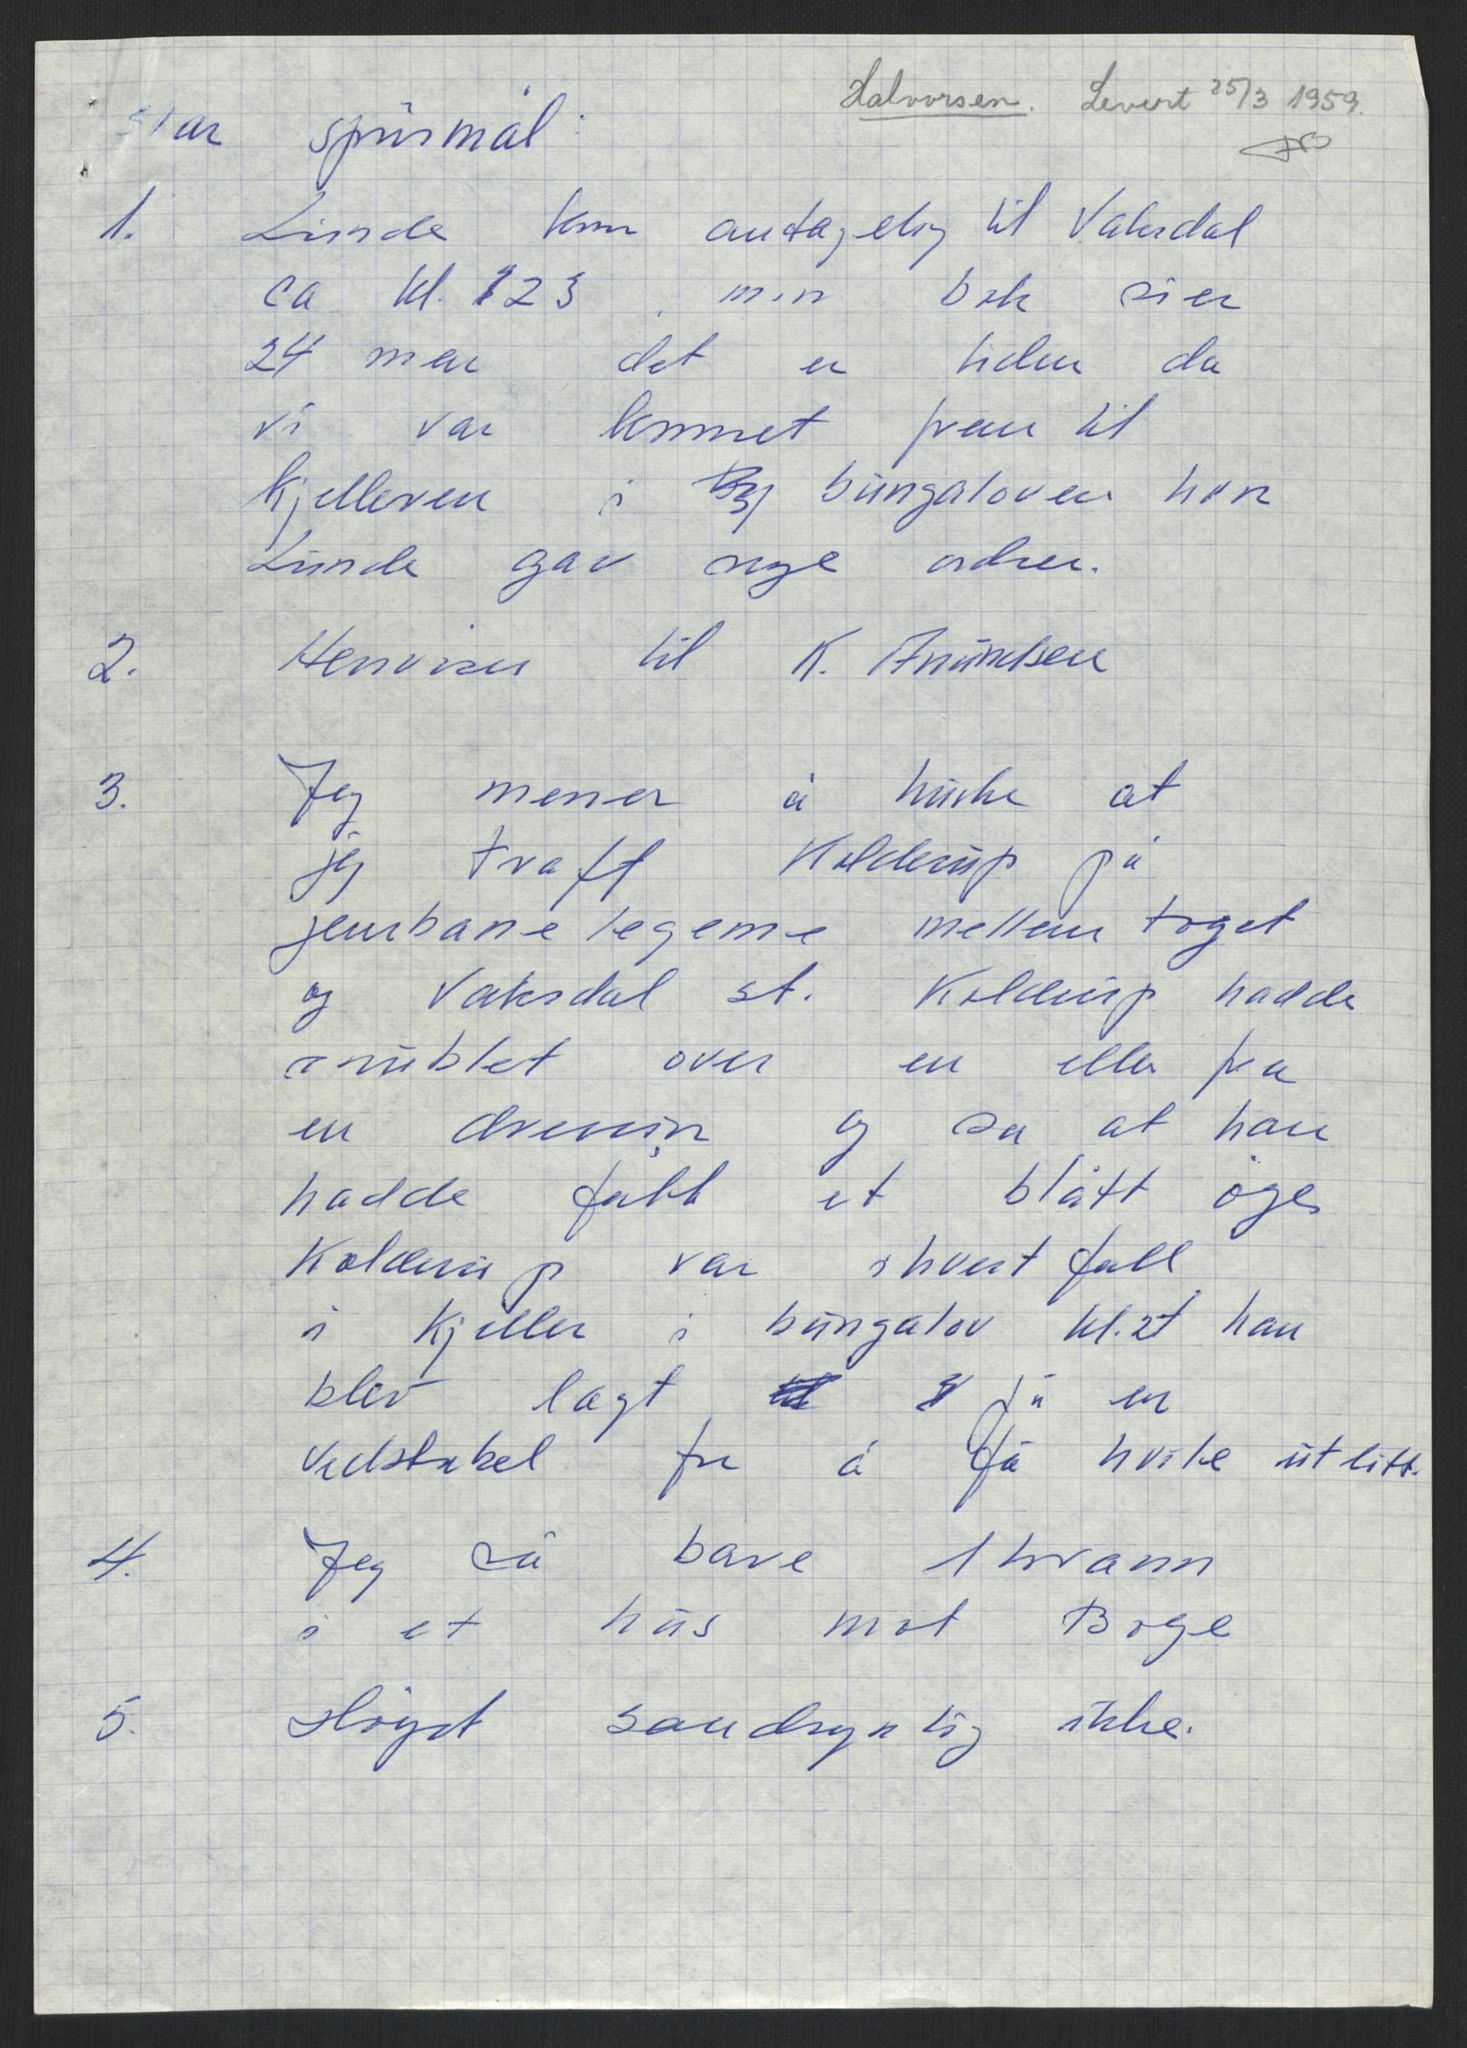 Halvorsen. Levert 25/3 1959.
svar spörsmål:
1. Linde kom antagelig til Vaksdal
ca kl. 23, min bok sier
24 men det er tiden da
vi var kommet frem til
kjelleren i bungaloven hvor
Linde gav nye ordrer.
2. Henviser til K. Knudsen
3. Jeg mener å huske at
jeg traff Kolderup på
jernbanelegeme mellem toget
og Vaksdal st. Kolderup hadde
snublet over en eller fra
en dressin og sa at han
hadde fått et blått öye,
Kolderup var ihvert fall
i kjeller i bungalov kl. 24 han
blev lagt på en
vedstabel for å få hvile ut litt.
4. Jeg så bare 1 brann
i et hus mot Boge
5. Höyst sandsynlig ikke.